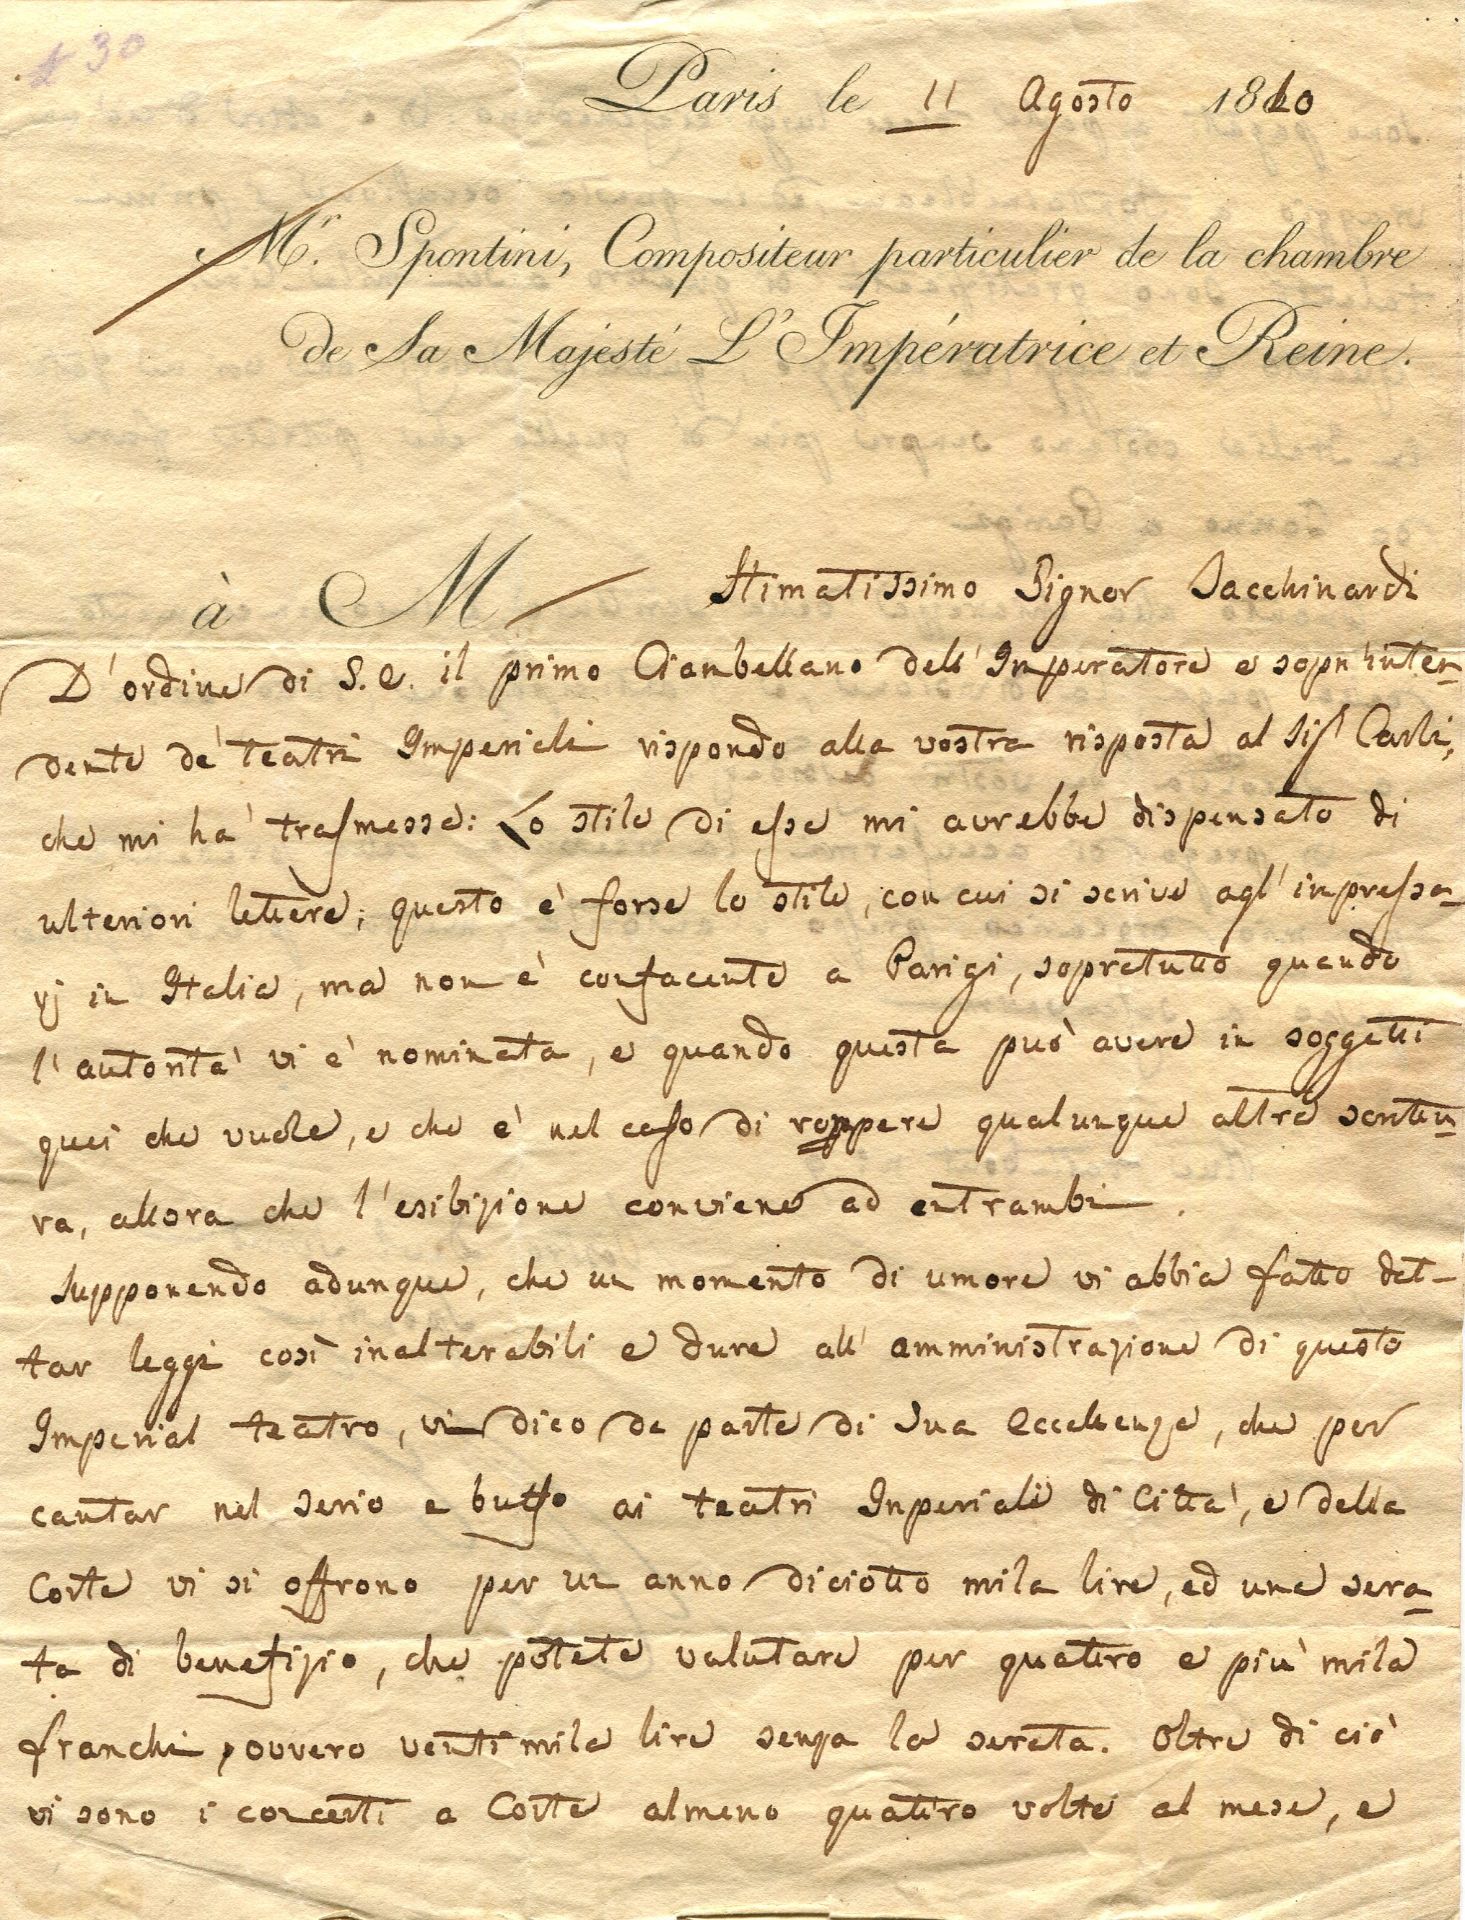 # 30
Paris le 11 Agosto 1810
Mr. Spontini, Compositeur particulier de la chambre
de Sa Majesté L'Impératrice et Reine.
à M Stimatissimo Signor Tacchinardi
D'ordine di S. E. il primo Ciambellano dell'Imperatore e sopr'inten-
dente de' teatri Imperiali rispondo alla vostra risposta al Sig.r Carli,
che mi ha' trasmessa: Lo stile di essa mi avrebbe dispensato di
ulteriori lettere; questo è forse lo stile, con cui si scrive agl'impressa-
rj in Italia, ma non è confacente a Parigi, sopratutto quando
l'autorità vi è nominata, e quando questa può avere in soggetti
quei che vuole, e che è nel caso di roppere qualunque altra scrittu-
ra, allora che l'esibizione conviene ad entrambi.
Supponendo adunque, che un momento di umore vi abbia fatto det-
tar leggi così inalterabili e dure all'amministrazione di questo
Imperial teatro, vi dico da parte di Sua Eccellenza, che per
cantar nel serio e buffo ai teatri Imperiali di Città, e della
Corte vi si offrono per un anno diciotto mila lire, ed una sera-
ta di benefizio, che potete valutare per quattro e più mila
franchi, ovvero venti mila lire senza la serata. Oltre di ciò
vi sono i concerti a Corte almeno quattro volte al mese, e